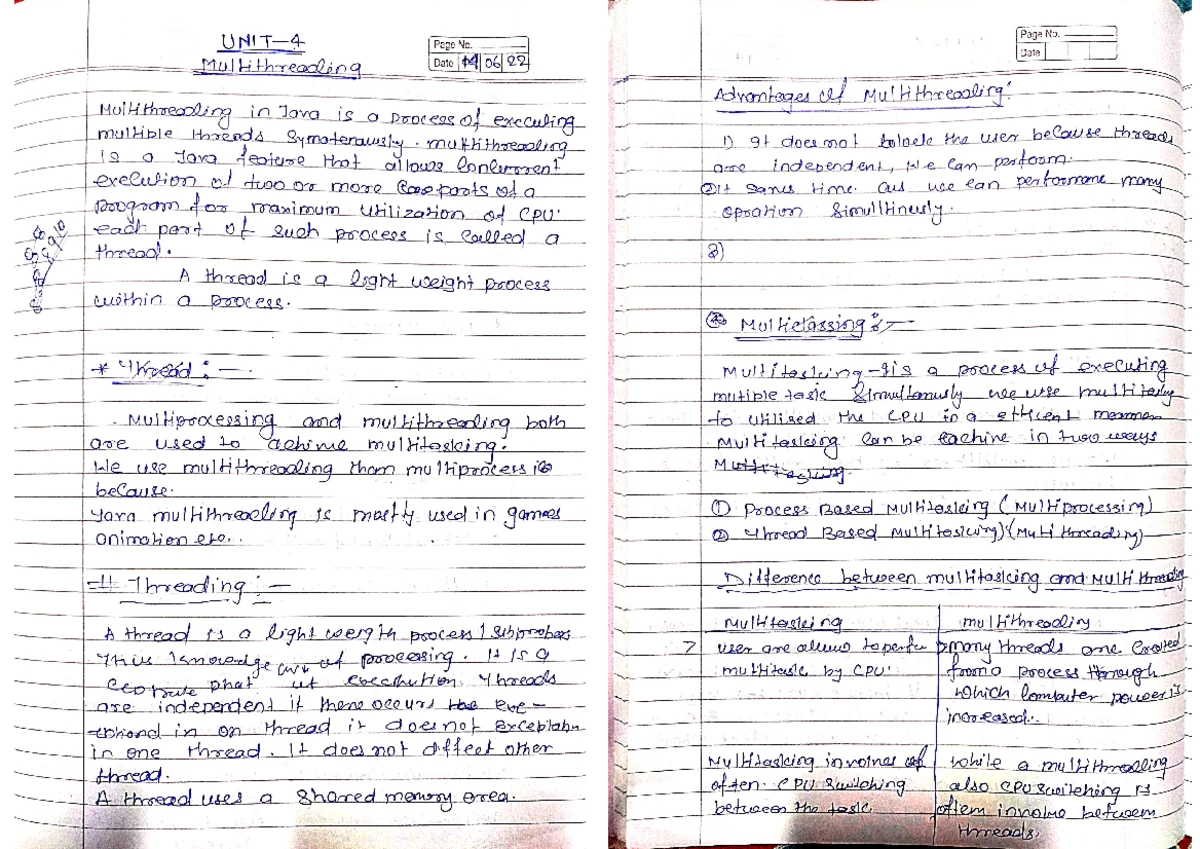 UNIT-4
Multithreading
Page No.
Date 14 06 22
Multithreading in Java is a process of executing
multiple threads Symoterausly. multithreading
is a Java feature that allows Concurrent
execution of two or more parts of a
program for maximum utilization of CPU.
each part of such process is called a
thread.
A thread is a light weight process
within a process.
* Thread :-
Multiprocessing and multithreading both
are used to achime multitasking.
We use multithreading tham multiprocess is
because.
Java multithreading is mostly used in games
animation etc..
Threading :-
A thread is a light weigth process
This of processing. It is a
phat of Threads
are independent if there occurs the exe-
in on thread it does not
in one thread. It does not affect other
thread.
A thread uses a Shared memory area.
Page No.
Date
Advantages of Multithreading:
1) It does not the user because threads
are independent, We can perform.
2) It time. as we can many
opration Simultinusly.
3)
Multictassing :-
Multitasking - is a process of executing
mutiple task Simultamusly we use
to utilised the CPU in a manner
Multitasking can be eachine in two ways
① Process Based Multitasking (Multiprocessing)
② Thread Based Multitasking) (Multi threading)
Difference between multitasking and Multi threading
Multitasking
user are to
multitask by CPU.
Multitasking involves
often. CPU Switching
between the task
multithreading
many threads are Created
from a process through
which Computer power is
increased..
While a multithreading
also CPU switching is
often between
threads.